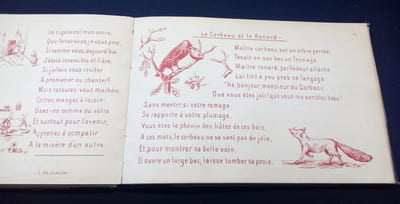 La cigale est mon amie,
Que feriez-vous, je vous prie
Si comme vous, aujourd'hui
J'étais insensible et fière,
Si j'allais vous inviter
À promener ou chanter?
Mais rassurez-vous ma chère,
Entrez, mangez à loisir:
Usez-en comme du vôtre
Et surtout pour l'avenir,
Apprenez à compatir
À la misère d'un autre.
Le Corbeau et le Renard
Maître corbeau, sur un arbre perché
Tenait en son bec un fromage
Maître renard, par l'odeur alléché
Lui tint à peu près ce langage
"Hé, bonjour, monsieur du Corbeau.
Que vous êtes joli! que vous me semblez beau!
Sans mentir, si votre ramage
Se rapporte à votre plumage,
Vous êtes le phénix des hôtes de ces bois,
À ces mots, le corbeau ne se sent pas de joie,
Et, pour montrer sa belle voix,
Il ouvre un large bec, laisse tomber sa proie.